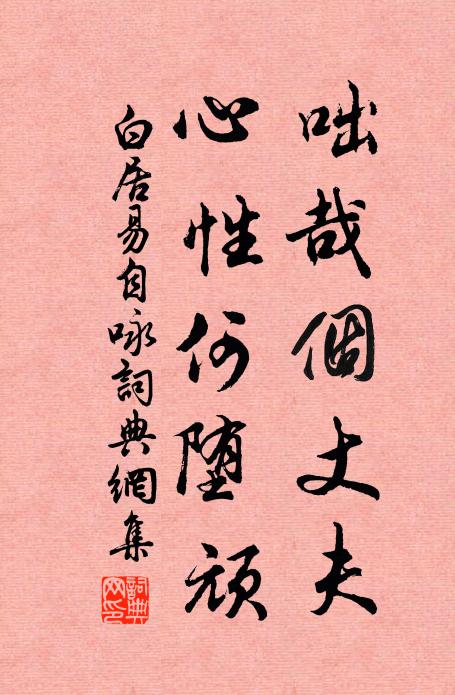 咄哉個丈夫
心性何堕頑
白居易自咏詞典網集
詞典網印